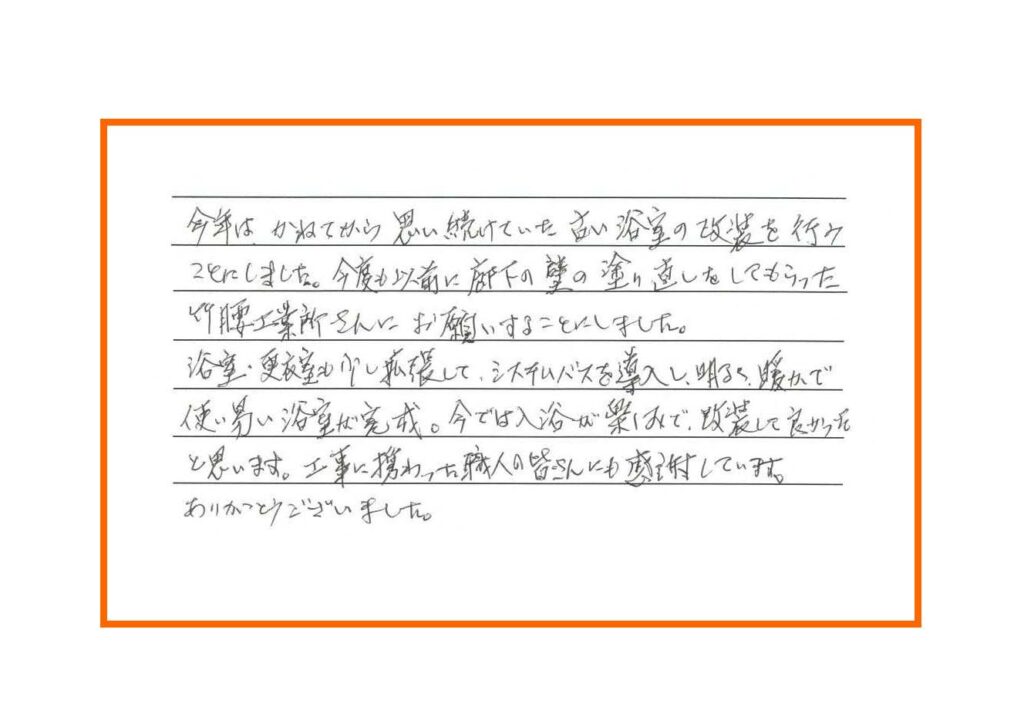 今年は、かねてから思い続けていた古い浴室の改装を行う
ことにしました。今度も以前に廊下の壁の塗り直しをしてもらった
竹腰工業所さんにお願いすることにしました。
浴室・更衣室も少し拡張して、システムバスを導入し、明るく、暖かで
使い易い浴室が完成。今では入浴が楽しみで、改装して良かった
と思います。工事に携わった職人の皆さんにも感謝しています。
ありがとうございました。